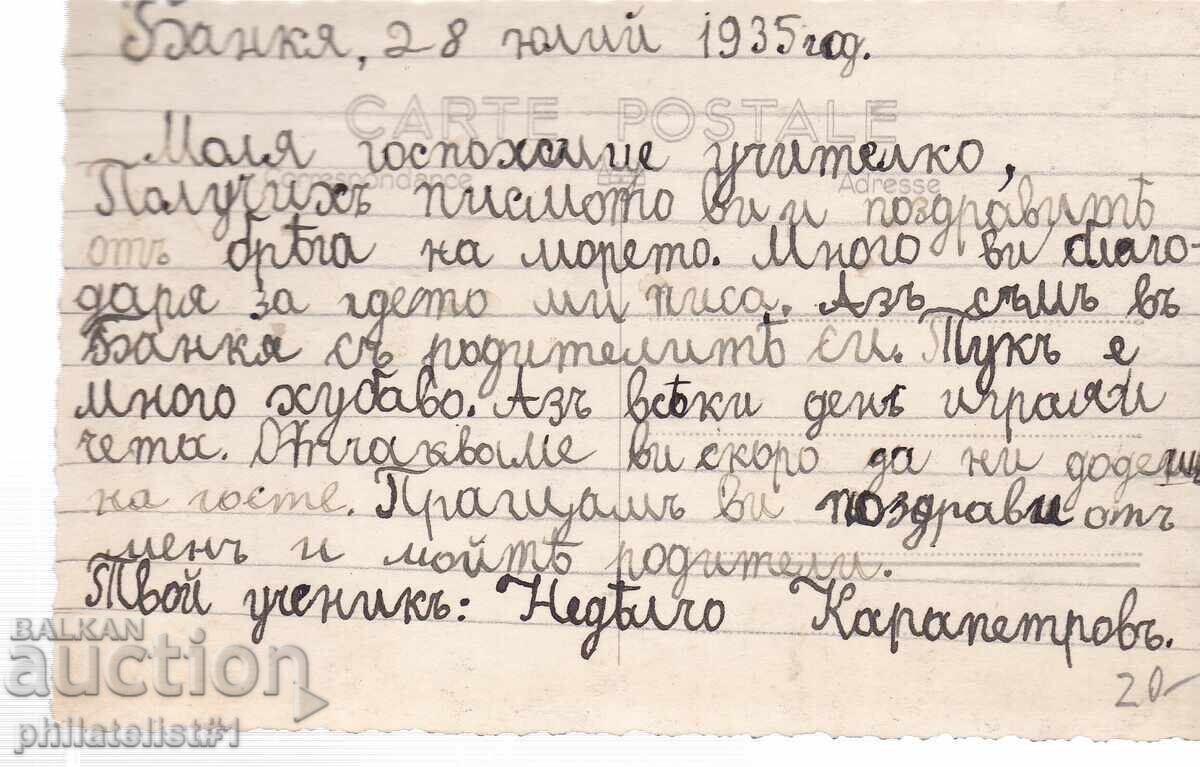 Банкя, 28 юлий 1935 год.
CARTE POSTALE
Моля госпожице учителко,
Correspondance Adresse
Получихъ писмото ви и поздравитѣ
отъ брѣга на морето. Много ви благо-
даря за гдето ми писа. Азъ съмъ въ
Банкя съ родителитѣ си. Тукъ е
много хубаво. Азъ всѣки день играя и
чета. Очакваме ви скоро да ни додешъ
на госте. Пращамъ ви поздрави отъ
менъ и мойтѣ родители.
Твой ученикъ: Недѣлчо Карапетровъ.
BALKAN
auction
philatelist#1
20-